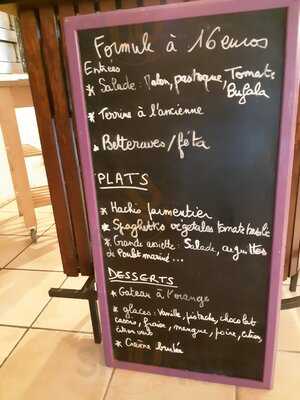 Formule à 16 euros
Entrées
* Salade : Melon, pastèque, Tomate
Bufala
* Terrine à l'ancienne
* Betteraves / féta
PLATS
* Hachis parmentier
* Spaghetto vegetales tomate basilic
* Grande assiette : Salade, aiguillettes
de Poulet mariné...
DESSERTS
* Gateau à l'orange
* glaces : Vanille, pistache, chocolat
cassis, fraise, mangue, poire, citron,
citron vert
* Crème brulée